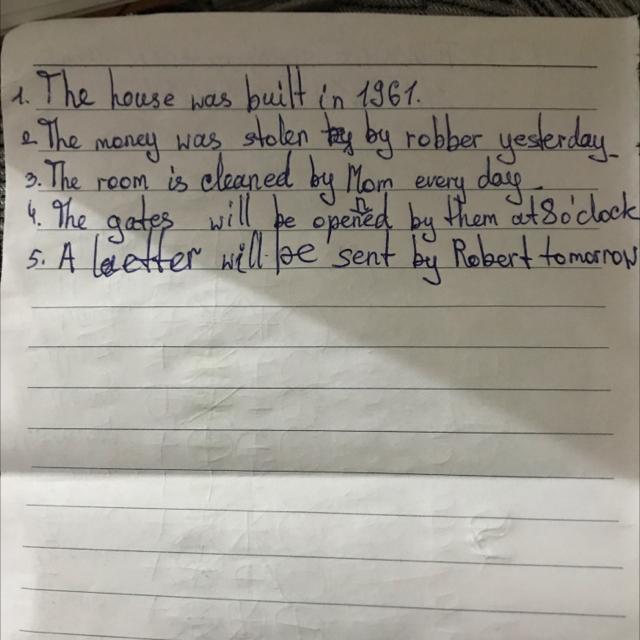 1. The house was built in 1961.
2. The money was stolen by by robber yesterday.
3. The room is cleaned by Mom every day.
4. The gates will be opened by them at 8 o'clock
5. A letter will be sent by Robert tomorrow